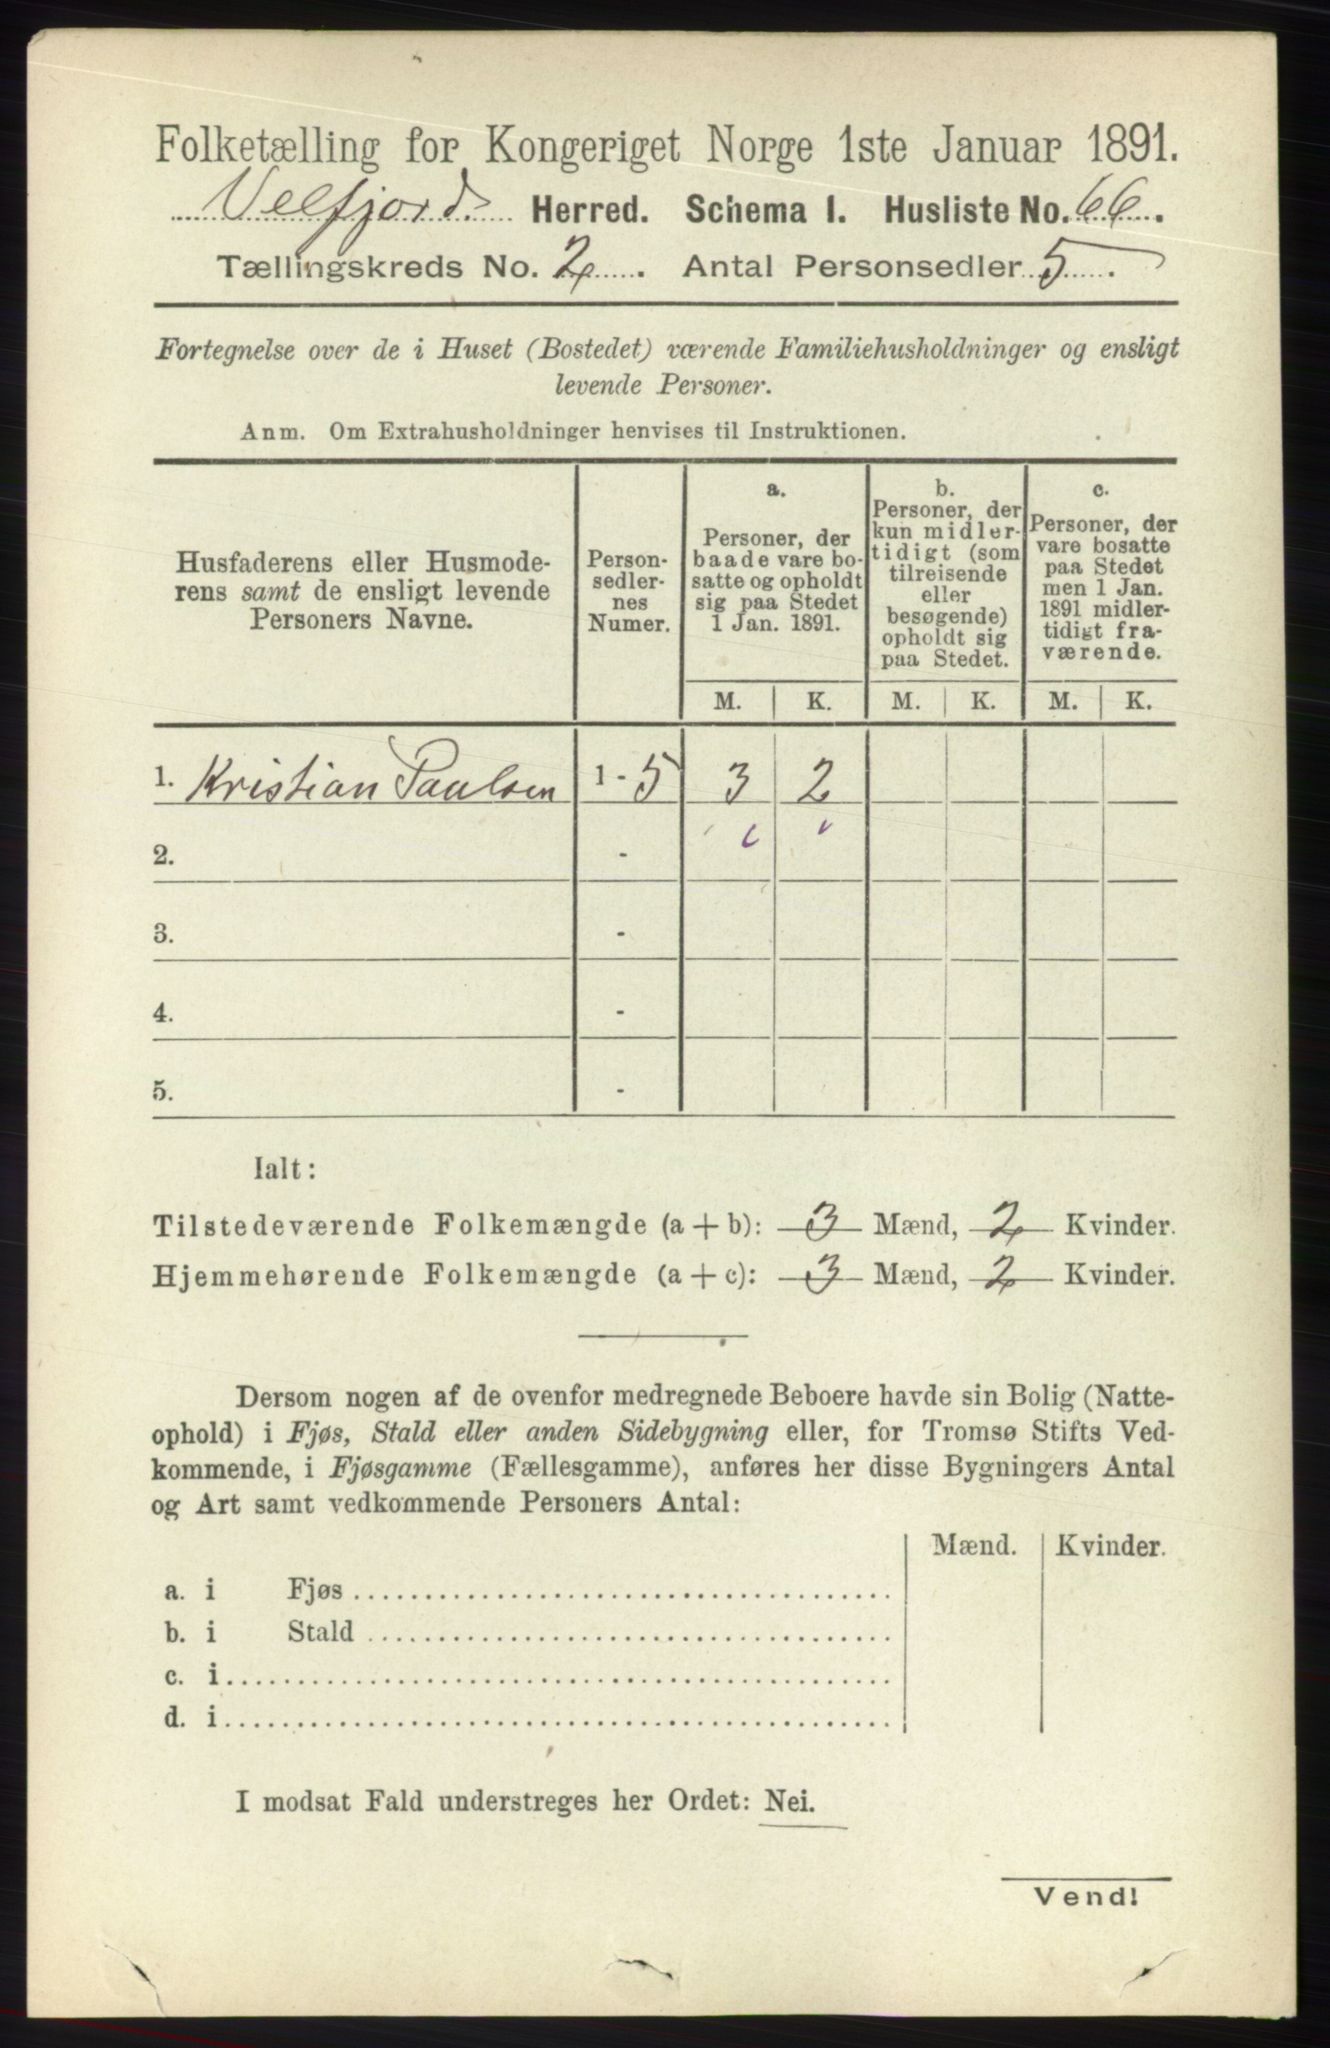 Folketælling for Kongeriget Norge 1ste Januar 1891.
Velfjord Herred. Schema I. Husliste No. 66.
Tællingskreds No. 2. Antal Personsedler 5.
Fortegnelse over de i Huset (Bostedet) værende Familiehusholdninger og ensligt
levende Personer.
Anm. Om Extrahusholdninger henvises til Instruktionen.
Husfaderens eller Husmode-
rens samt de ensligt levende
Personers Navne.
Person-
sedler-
nes
Numer.
a.
Personer, der
baade vare bo-
satte og opholdt
sig paa Stedet
1 Jan. 1891.
b.
Personer, der
kun midler-
tidigt (som
tilreisende
eller
besøgende)
opholdt sig
paa Stedet.
c.
Personer, der
vare bosatte
paa Stedet
men 1 Jan.
1891 midler-
tidigt fra-
værende.
M. K. M. K. M. K.
1. Kristian Paulsen 1 - 5 3 2
2. -
3. -
4. -
5. -
Ialt:
Tilstedeværende Folkemængde (a + b): 3 Mænd, 2 Kvinder.
Hjemmehørende Folkemængde (a + c): 3 Mænd, 2 Kvinder.
Dersom nogen af de ovenfor medregnede Beboere havde sin Bolig (Natte-
ophold) i Fjøs, Stald eller anden Sidebygning eller, for Tromsø Stifts Ved-
kommende, i Fjøsgamme (Fællesgamme), anføres her disse Bygningers Antal
og Art samt vedkommende Personers Antal:
Mænd. Kvinder.
a. i Fjøs
b. i Stald
c. i
d. i
I modsat Fald understreges her Ordet: Nei.
Vend!